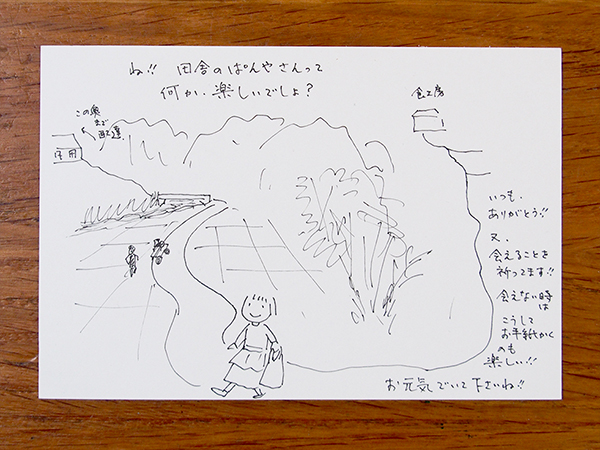 ね!! 田舎のぱんやさんって
何か、楽しいでしょ?
食工房
この奥
まで
配達
いつも、
ありがとう!!
又、
会えることを
祈ってます!!
会えない時
は
こうして
お手紙かく
のも
楽しい!!
お元気でいて下さいね!!